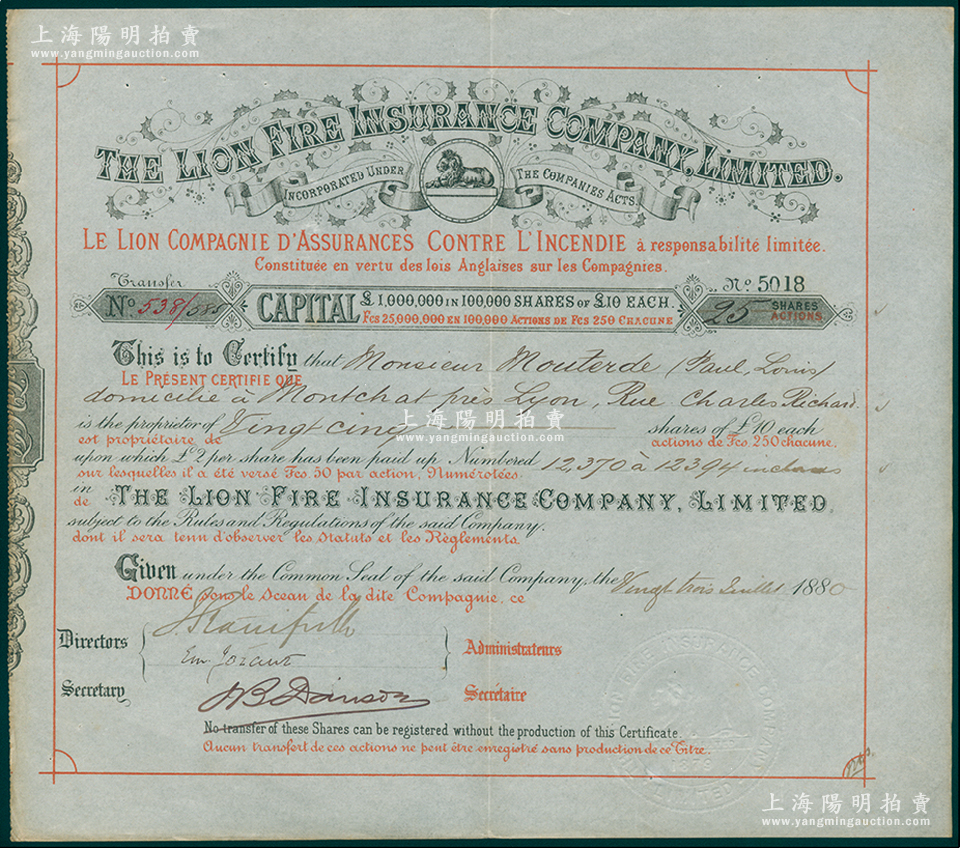 上海陽明拍賣
www.yangmingauction.com
THE LION FIRE INSURANCE COMPANY, LIMITED.
INCORPORATED UNDER THE COMPANIES ACTS.
LE LION COMPAGNIE D'ASSURANCES CONTRE L'INCENDIE à responsabilité limitée.
Constituée en vertu des lois Anglaises sur les Compagnies.
Transfer
No 538/585
CAPITAL £1,000,000 IN 100,000 SHARES OF £10 EACH.
Fcs 25,000,000 EN 100,000 ACTIONS DE Fcs 250 CHACUNE
No. 5018
25 SHARES
ACTIONS
This is to Certify that Monsieur Mouterde (Paul, Louis)
LE PRÉSENT CERTIFIE QUE
domicilié à Montchat près Lyon, Rue Charles Richard
上海陽明拍賣
www.yangmingauction.com
is the proprietor of Vingt cinq shares of £10 each
est propriétaire de actions de Fcs. 250 chacune.
upon which £2 per share has been paid up. Numbered 12,370 à 12394 inclus
sur lesquelles il a été versé Fcs. 50 par action, Numérotées
in
de THE LION FIRE INSURANCE COMPANY, LIMITED,
subject to the Rules and Regulations of the said Company.
dont il sera tenu d'observer les Statuts et les Règlements
Given under the Common Seal of the said Company, the Vingt trois Juillet 1880
DONNÉ sous le Sceau de la dite Compagnie, ce
Directors
Administrateurs
Em. Jozaut
Secretary
Secrétaire
No transfer of these Shares can be registered without the production of this Certificate.
Aucun transfert de ces actions ne peut être enregistré sans production de ce Titre.
LION FIRE INSURANCE COMPANY LIMITED
1879
上海陽明拍賣
www.yangmingauction.com